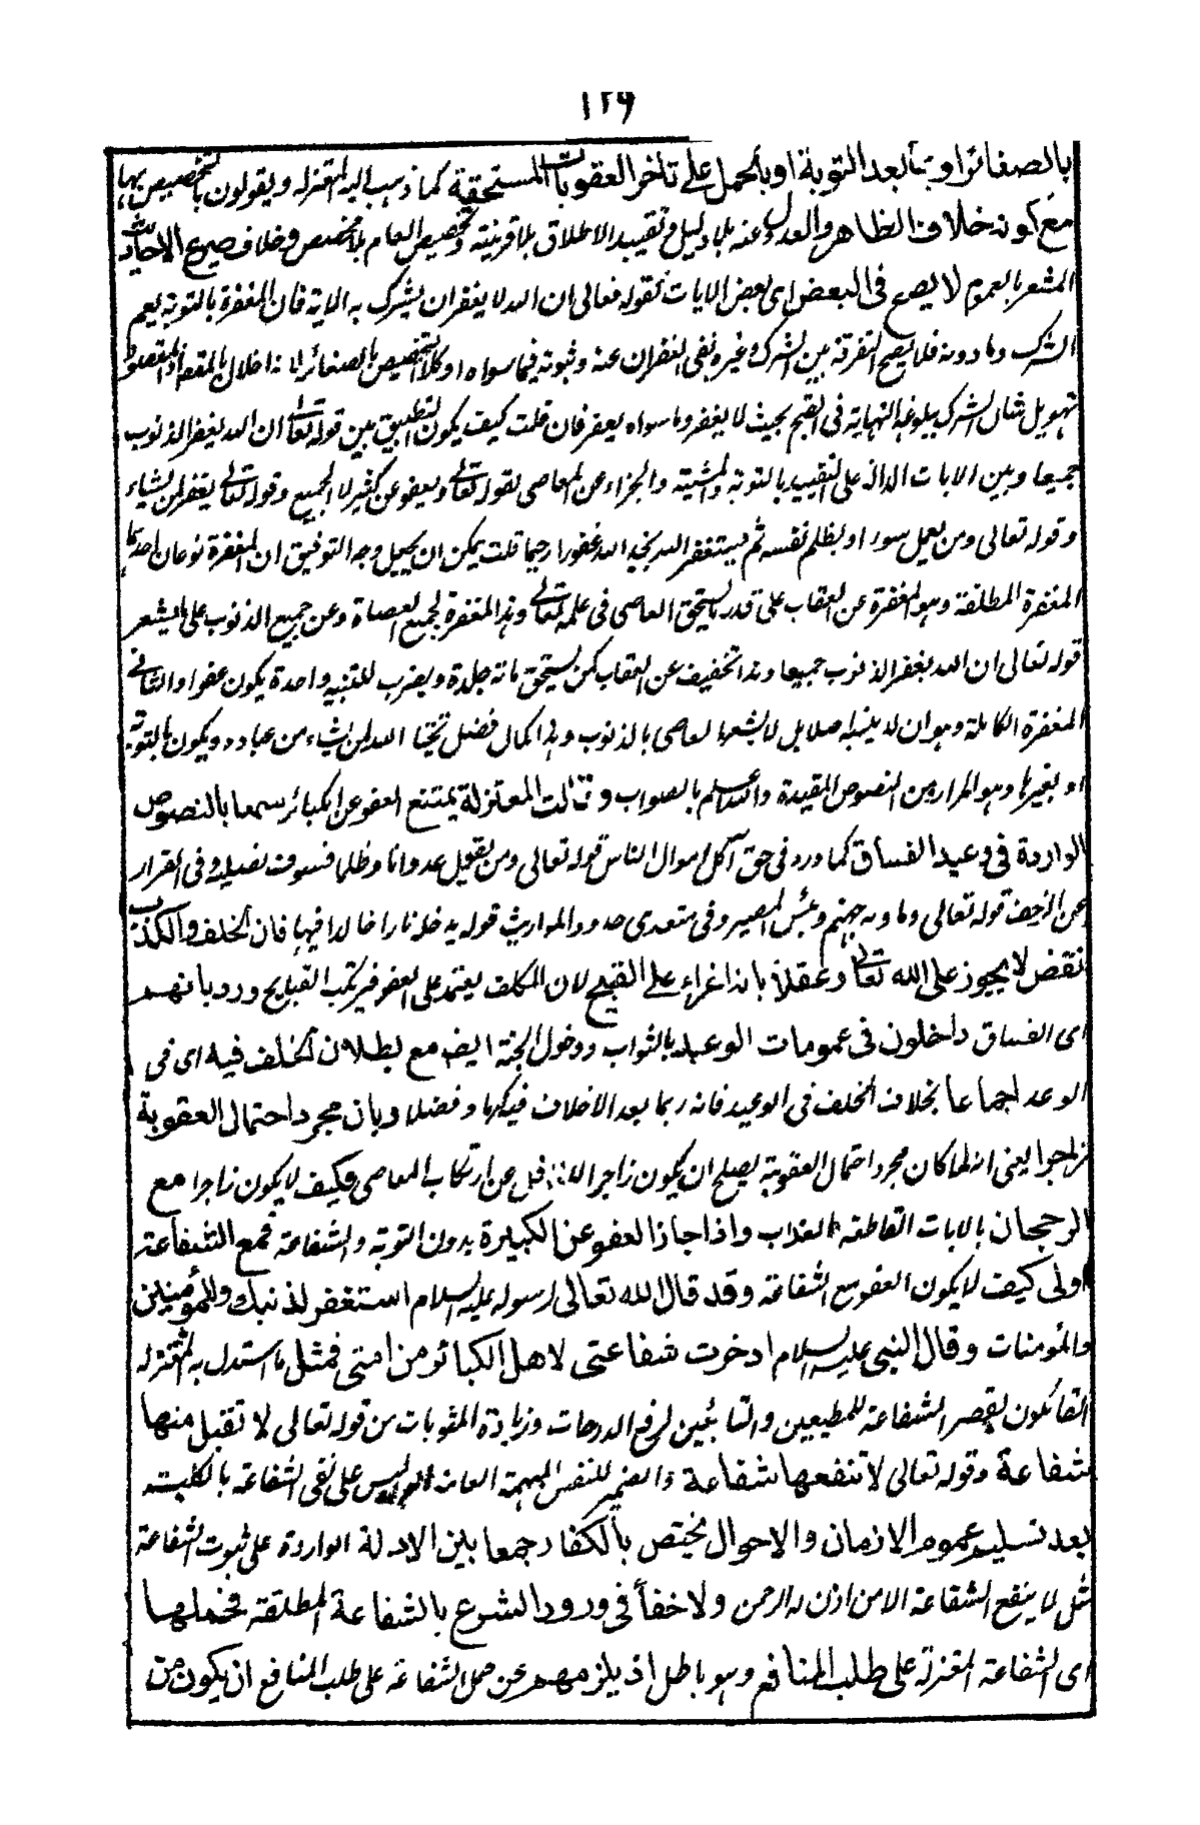 ١٢٩
بالصغائر او بما بعد التوبة او بالحمل على تاخر العقوبات المستحقة كما ذهب اليه المعتزلة ويقولون بالتخصيص بها
مع كونه خلاف الظاهر والعدول عنه بلا دليل وتقييد الاطلاق بلا قرينة وتخصيص العام بلا مخصص وخلاف صريح الاحاديث
المشعر بالعموم لا يصح فى البعض اى بعض الايات كقوله تعالى ان الله لا يغفر ان يشرك به الاية فان المغفرة بالتوبة يعم
الشرك وما دونه فلا يصح التفرقة بين الشرك وغيره بنفى الغفران عنه وثبوته فيما سواه او كذا التخصيص بالصغائر لانه اخلال بالمقصود اذ المقصود
تهويل شان الشرك ببلوغه النهاية فى القبح بحيث لا يغفر وما سواه يغفر فان قلت كيف يكون التطبيق بين قوله تعالى ان الله يغفر الذنوب
جميعا وبين الايات الدالة على التقييد بالتوبة والمشية والجزاء عن المعاصى لقوله تعالى ويعفو عن كثير لا الجميع وقوله تعالى يغفر لمن يشاء
وقوله تعالى ومن يعمل سوء او يظلم نفسه ثم يستغفر الله يجد الله غفورا رحيما قلت يمكن ان يجعل وجه التوفيق ان المغفرة نوعان احدهما
المغفرة المطلقة وهو المغفرة عن العقاب على قدر ما يستحق العاصى فى علمه تعالى وهذا المغفرة لجميع العصاة وعن جميع الذنوب على ما يشعر
قوله تعالى ان الله يغفر الذنوب جميعا وهذا تخفيف عن العقاب كمن يستحق مائة جلدة ويضرب للتنبيه واحدة يكون عفوا والثانى
المغفرة الكاملة وهو ان لا ينبه اصلا بل لا يشعر العاصى بالذنوب وهذا كمال فضل تختا الله لمن يشاء من عباده ويكون بالتوبة
او بغيرها وهو المراد من النصوص المقيدة والله اعلم بالصواب وقالت المعتزلة يمتنع العفو عن الكبائر سمعا بالنصوص
الواردة فى وعيد الفساق كما ورد فى حق آكل اموال الناس قوله تعالى ومن يفعل عدوانا وظلما فسوف نصليه وفى الفرار
عن الزحف قوله تعالى وماواه جهنم وبئس المصير وفى متعدى حدود المواريث قوله يدخله نارا خالدا فيها فان الخلف والكذب
نقض لا يجوز على الله تعالى وعقلا بانه اغراء على القبيح لان المكلف يعتمد على العفو فيرتكب القبايح ورد بانهم
اى الفساق داخلون فى عمومات الوعد بالثواب ودخول الجنة ايضا مع بطلان الخلف فيه اى فى
الوعد اجماعا بخلاف الخلف فى الوعيد فانه ربما يعد الاخلاف فيه كرما وفضلا وبان مجرد احتمال العقوبة
زاجرا يعنى انه لما كان مجرد احتمال العقوبة يصلح ان يكون زاجرا للعاقل عن ارتكاب المعاصى فكيف لا يكون زاجرا مع
الرجحان بالايات القاطعة العذاب واذا جاز العفو عن الكبيرة بدون التوبة والشفاعة فمع الشفاعة
اولى كيف لا يكون العفو مع الشفاعة وقد قال الله تعالى لرسوله عليه السلام استغفر لذنبك وللمؤمنين
والمؤمنات وقال النبى عليه السلام ادخرت شفاعتى لاهل الكبائر من امتى فمثل ما استدل به المعتزلة
القائلون بقصر الشفاعة للمطيعين والتائبين لرفع الدرجات وزيادة المثوبات من قوله تعالى لا تقبل منها
شفاعة وقوله تعالى لا تنفعها شفاعة والضمير للنفس المبهمة العامة على نفى الشفاعة بالكلية
بعد تسليم عموم الازمان والاحوال يختص بالكفار جمعا بين الادلة الواردة على ثبوت الشفاعة
مثل لا ينفع الشفاعة الا من اذن له الرحمن ولا خفأ فى ورود الشرع بالشفاعة المطلقة فحملها
اى الشفاعة المعتزلة على طلب المنافع وهو باطل اذ يلزمهم عن حمل الشفاعة على طلب المنافع ان يكون من